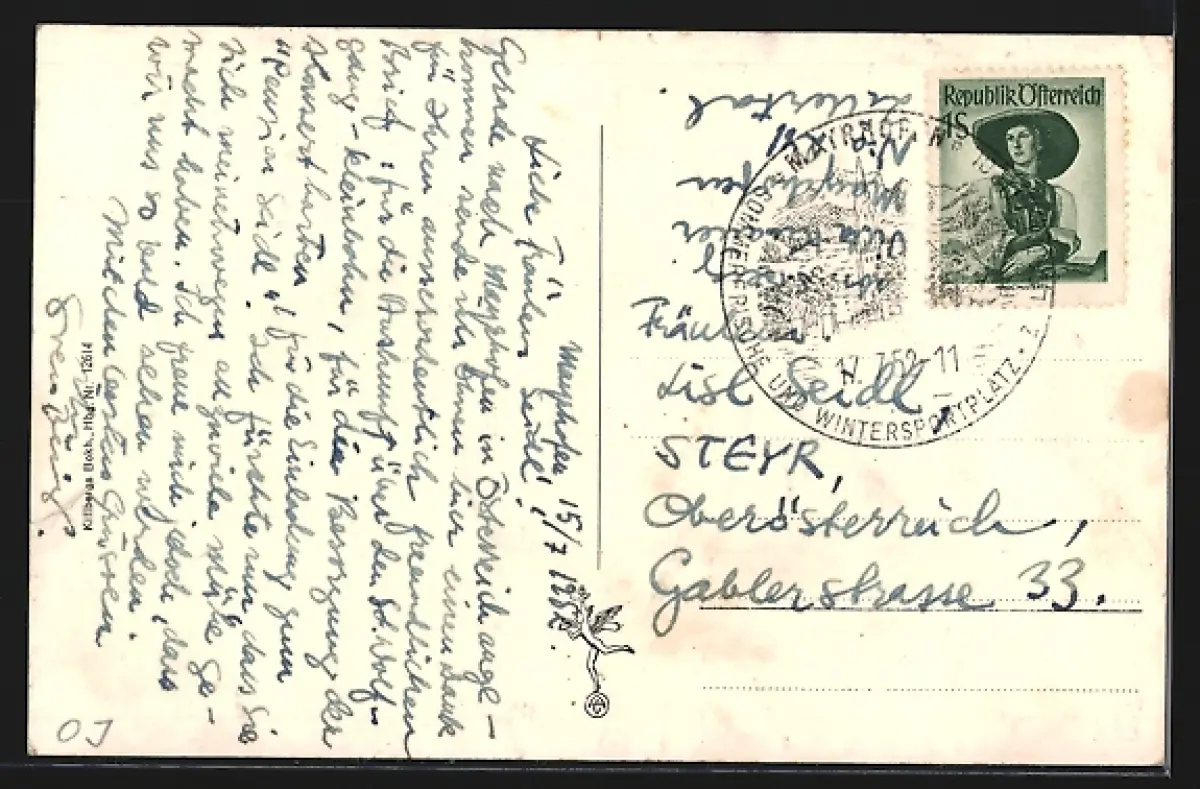 Mayrhofen, 15/7 1952.
Liebe Fräulein Seidl!
Gerade nach Mayrhofen in Österreich ange-
kommen sende ich Ihnen hier einen Dank
für Ihren ausserordentlich freundlichen
Brief, für die Auskunft über den St. Wolf-
gang-kleinbahn, für die Besorgung der
Konzertkarten, für die Einladung zum
"Pension Seidl". Ich fürchte nur, dass Sie
sich meinetwegen allzuviele Mühe ge-
macht haben. Ich freue mich jedoch, dass
wir uns so bald sehen werden.
Mit den besten Grüssen
Ihr
Kilbergs Elokh., Hbg. Nr. 12614
OJ
Republik Österreich
1S
MAYRHOFEN
SOMMERFRISCHE UND WINTERSPORTPLATZ
17.7.52-11
2
Villa
Mayrhofen
Zillertal
Fräulein
Lisl Seidl
STEYR,
Oberösterreich,
Gablerstrasse 33.